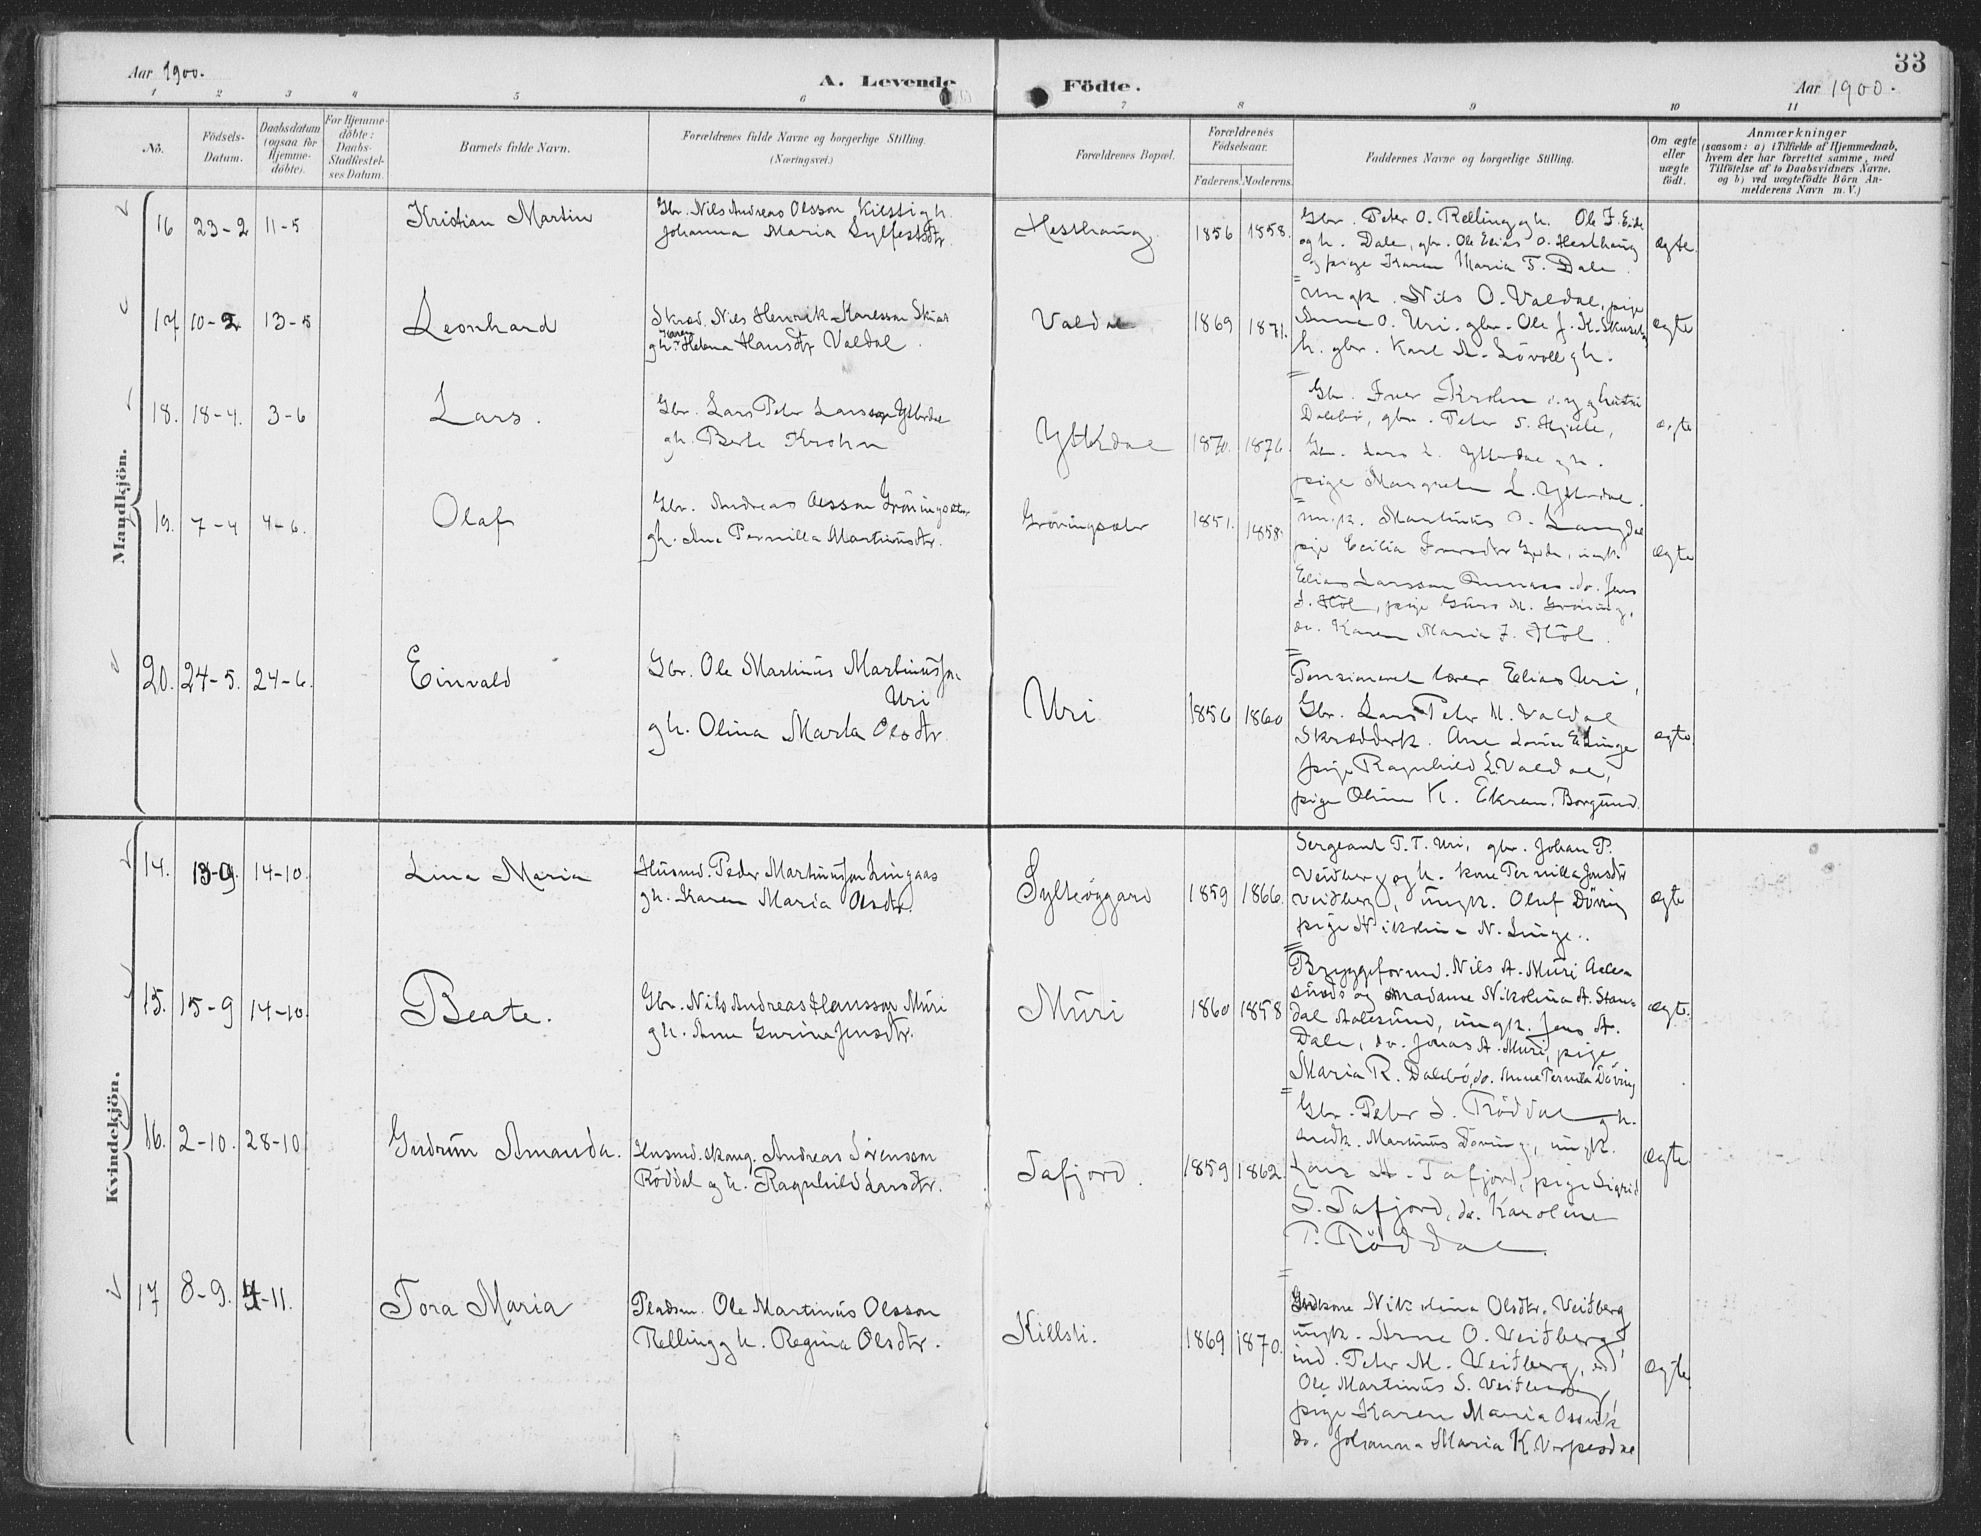 33
Aar 1900.
A. Levende
Födte.
Aar 1900.
1 2 3 4 5 6 7 8 9 10 11
No.
Födsels-
Datum.
Daabsdatum
(ogsaa for
Hjemme-
döbte).
For Hjemme-
döbte:
Daabs-
Stadfæstel-
ses Datum.
Barnets fulde Navn.
Forældrenes fulde Navne og borgerlige Stilling.
(Næringsvei.)
Forældrenes Bopæl.
Forældrenes
Födselsaar.
Faderens. Moderens.
Faddernes Navne og borgerlige Stilling.
Om ægte
eller
uægte
födt.
Anmærkninger
(saasom: a) i Tilfælde af Hjemmedaab,
hvem der har forrettet samme, med
Tilföielse af to Daabsvidners Navne.
og b) ved uægtefödte Börn An-
melderens Navn m. V.)
Mandkjön.
16 23-2 11-5
Kristian Martin
Gbr. Nils Andreas Olsson Kilsti gh.
Johanna Maria Sylfestdtr.
Hesthaug.
1856 1858.
Gbr. Peter O. Relling gh. Ole J. Eide
og h. Dale, gbr. Ole Elias O. Hesthaug
og pige Karen Maria T. Dale.
ægte.
17 10-2 13-5
Leonhard
Skræd. Nils Henrik Karlsson
Karen
gh. Helena Hansdtr Valdal.
Valdal
1869 1871.
Ungk. Nils O. Valdal, pige
Anne O. Uri, gbr. Ole J. K.
h. gbr. Karl A. Lövoll gh.
ægte
18. 18-4. 3-6
Lars.
Gbr. Lars Peter Larsson Ytterdal
gh. Berte Krohn
Ytterdal
1870. 1876.
Gbr. Iver Krohn
Dalebö, gbr. Peter S. Hjelle,
Gbr. Lars L. Ytterdal gh.
pige Margrete L. Ytterdal.
ægte
19. 7-4 4-6.
Olaf
Gbr. Andreas Olsson Gröningsæter
gh. Ane Pernilla Martinusdtr.
Gröningsæter
1851. 1858.
ungk. Martinus O. Langdal
pige Cecilia Iversdtr Gjerde, ungk.
Elias Larsson do. Jens
J. Höl, pige Guro M. Gröning,
do. Karen Maria J. Höl.
ægte
20. 24-5. 24-6.
Einvald
Gbr. Ole Martinus Martinussn.
Uri
gh. Olina Marta Olsdtr.
Uri
1856 1860
Pensioneret lærer Elias Uri,
Gbr. Lars Peter M. Valdal
Skrædderk. Ane Lovise E. Linge
pige Ragnhild L. Valdal,
pige Oline K. Ekran. Borgund.
ægte.
Kvindekjön.
14. 13-9. 14-10.
Lina Maria
Husmd. Peder Martinussn Lingaas
gh. Karen Maria Olsdtr.
Syltevöggard
1859 1866.
Sergeant T. T. Uri, gbr. Johan P.
Veidberg og h. kone Pernilla Jensdtr
Veidberg, ungk. Oluf Döving
pige Nikolina N. Linge.
ægte
15. 15-9 14-10.
Beate.
Gbr. Nils Andreas Hansson Muri
gh. Anne Gurine Jensdtr.
Muri
1860 1858
Bryggeformd. Nils A. Muri Aale-
sund og madame Nikolina A. Stan-
dal Aalesund, ungk. Jens A.
Dale, do. Jonas A. Muri, pige
Maria R. Dalebö, do. Anne Pernila Döving
ægte.
16. 2-10. 28-10.
Gudrun Amanda.
Husmd. Andreas Sörensson
Röddal og h. Ragnhild Larsdtr.
Tafjord.
1859 1862.
Gbr. Peter S. Röddal gh.
smedk. Martinus Döving, ungk.
Lars A. Tafjord, pige Sigrid
S. Tafjord, do. Karoline
P. Röddal.
ægte
17 8-9. 4-11.
Tora Maria
Pladsm. Ole Martinus Olsson
Relling gh. Regina Olsdtr.
Killsti.
1869 1870.
Gbrkone Nikolina Olsdtr. Veidberg
ungk. Arne O. Veidberg,
ind. Peter M. Veidberg, ind
Ole Martinus S. Veidberg,
pige Karen Maria Ossvik
do. Johanna Maria K. Verpesdal
ægte.